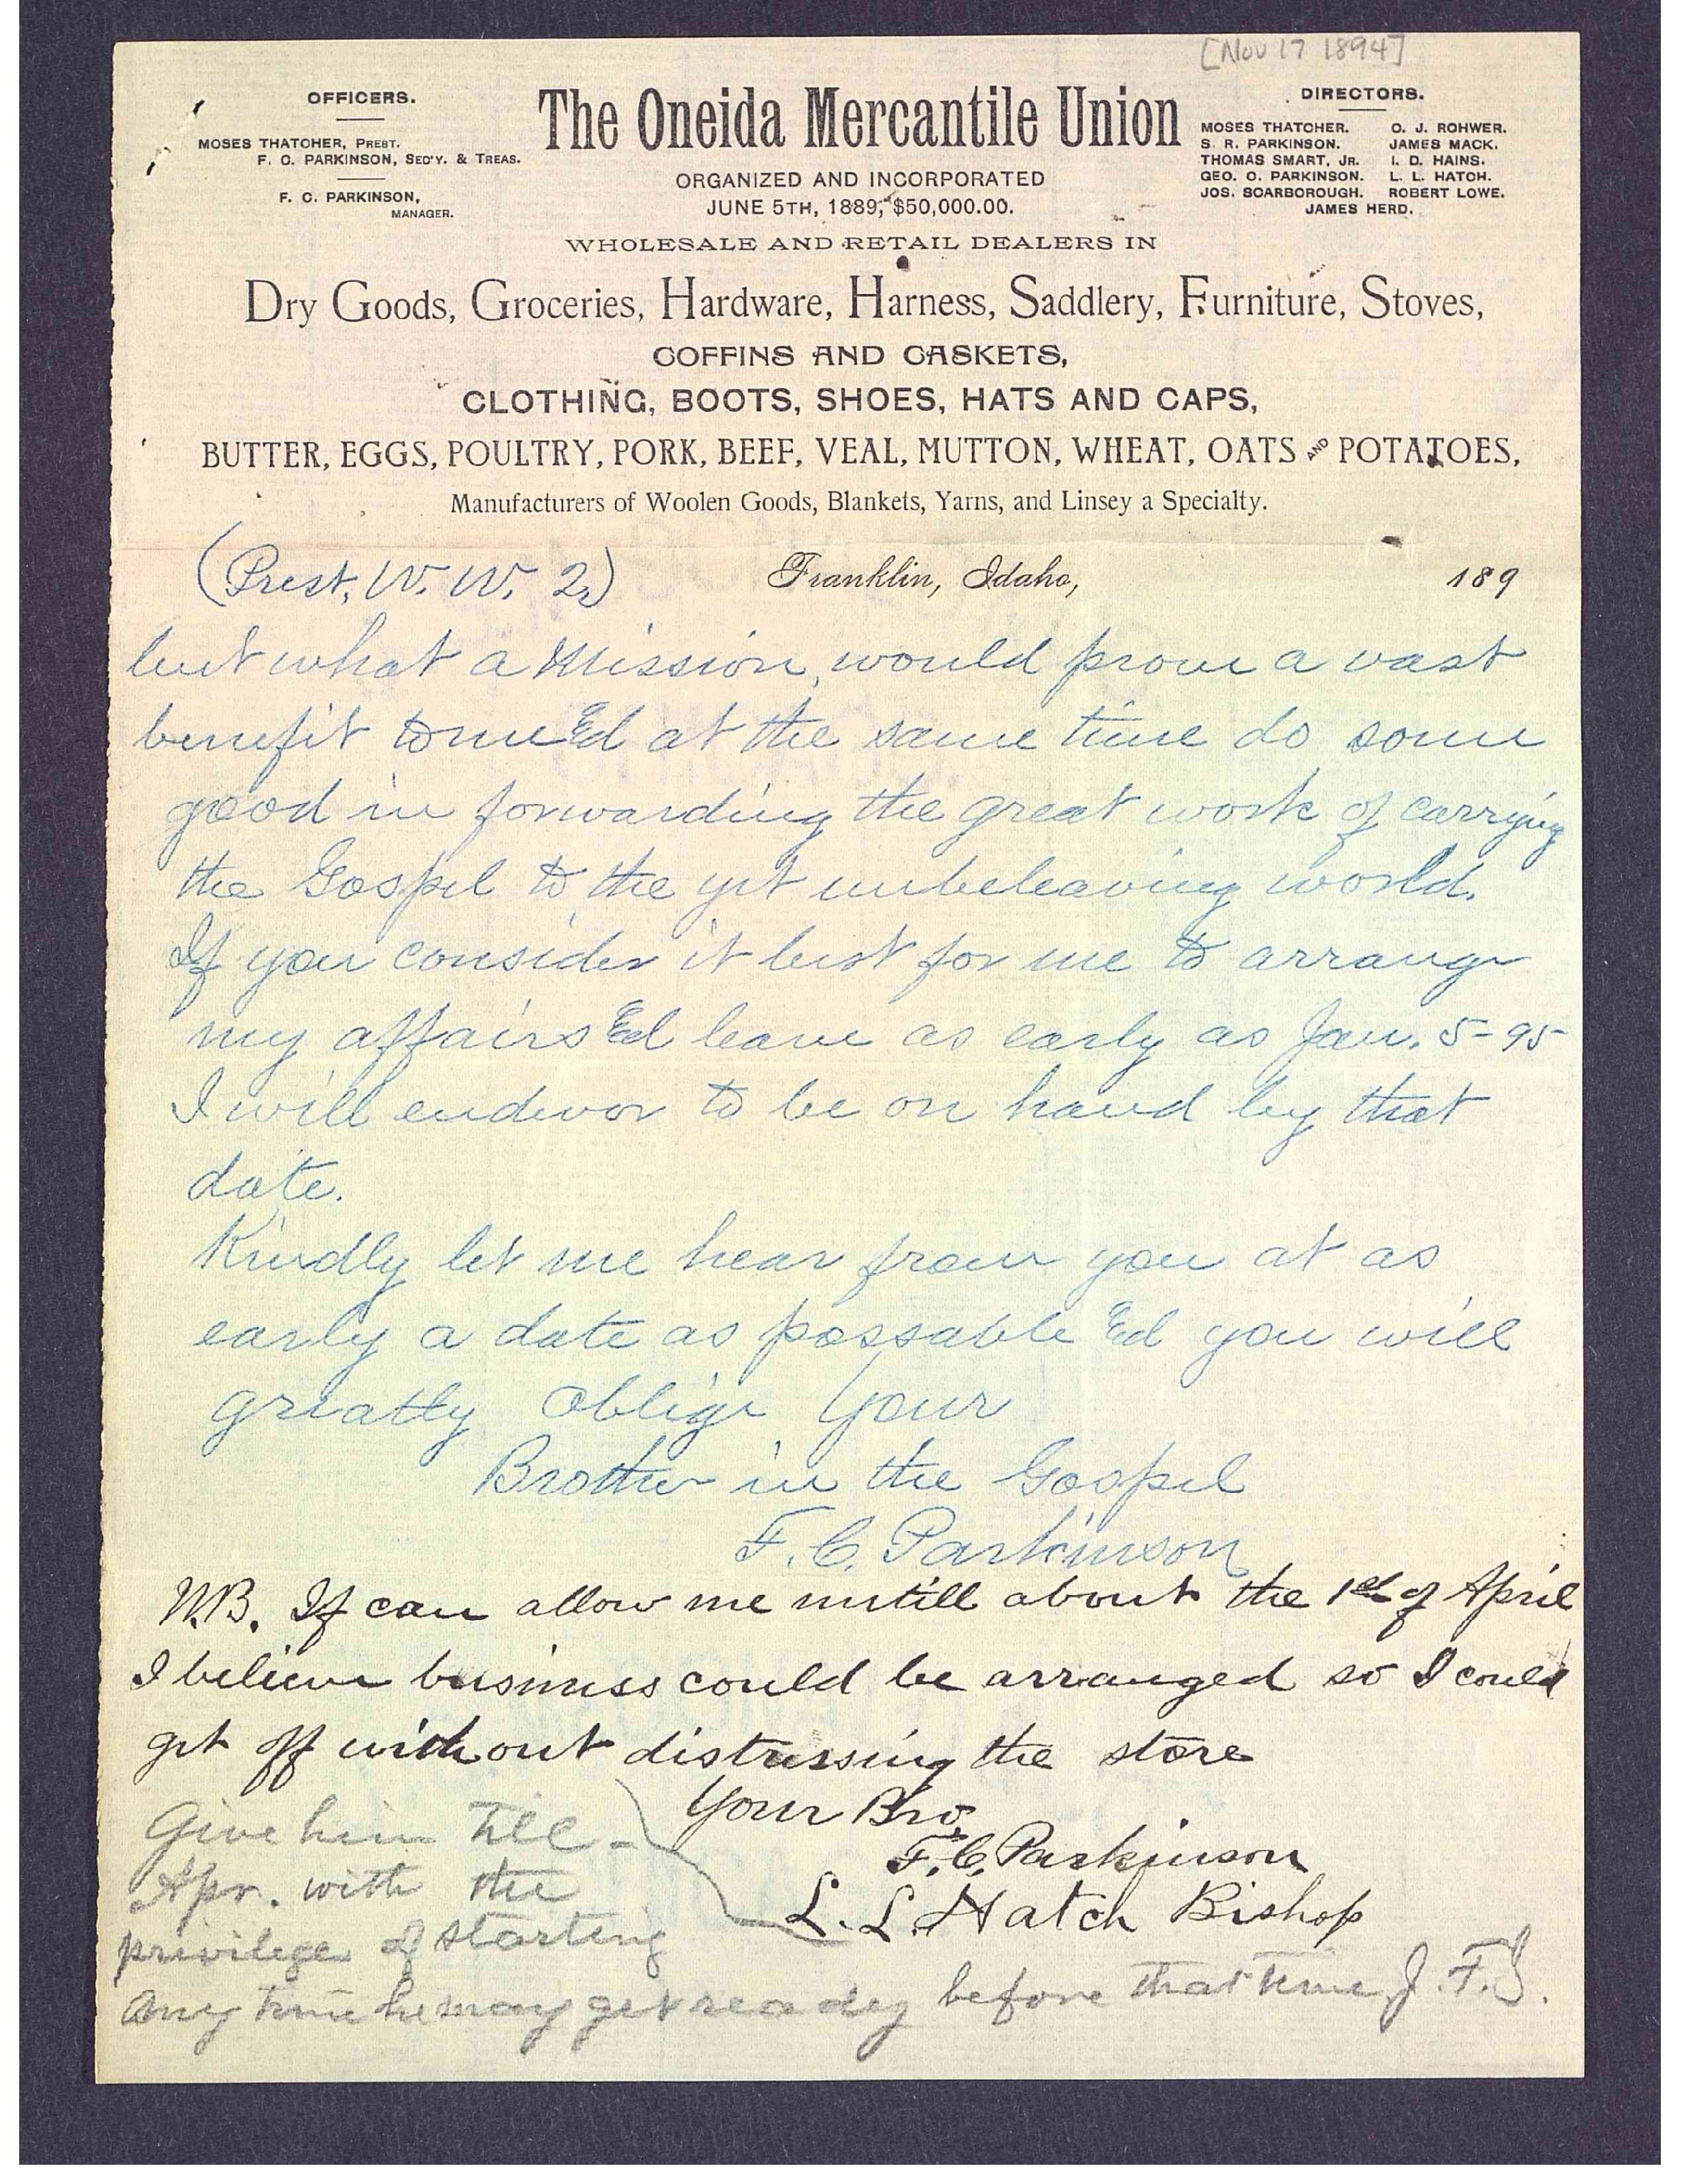 [Nov 17 1894]
OFFICERS.
MOSES THATCHER, PREST.
F. C. PARKINSON, SEC'Y. & TREAS.
F. C. PARKINSON,
MANAGER.
The Oneida Mercantile Union
ORGANIZED AND INCORPORATED
JUNE 5TH, 1889, $50,000.00.
DIRECTORS.
MOSES THATCHER. O. J. ROHWER.
S. R. PARKINSON. JAMES MACK.
THOMAS SMART, JR. I. D. HAINS.
GEO. C. PARKINSON. L. L. HATCH.
JOS. SCARBOROUGH. ROBERT LOWE.
JAMES HERD.
WHOLESALE AND RETAIL DEALERS IN
Dry Goods, Groceries, Hardware, Harness, Saddlery, Furniture, Stoves,
COFFINS AND CASKETS,
CLOTHING, BOOTS, SHOES, HATS AND CAPS,
BUTTER, EGGS, POULTRY, PORK, BEEF, VEAL, MUTTON, WHEAT, OATS AND POTATOES,
Manufacturers of Woolen Goods, Blankets, Yarns, and Linsey a Specialty.
(Prest. W. W. 2.) Franklin, Idaho, 189
but what a Mission, would prove a vast
benefit to me & at the same time do some
good in forwarding the great work of carrying
the Gospel to the yet unbeleaving world.
If you consider it best for me to arrange
my affairs & leave as early as Jan. 5-95
I will endevor to be on hand by that
date.
Kindly let me hear from you at as
early a date as possable & you will
greatly oblige Your
Brother in the Gospel
F. C. Parkinson
N.B. If can allow me untill about the 1st of April
I believe business could be arranged so I could
get off without distressing the store
Your Bro,
F. C. Parkinson
L. L. Hatch Bishop
Give him till
Apr. with the
privilege of starting
any time he may get ready before that time J. F. S.